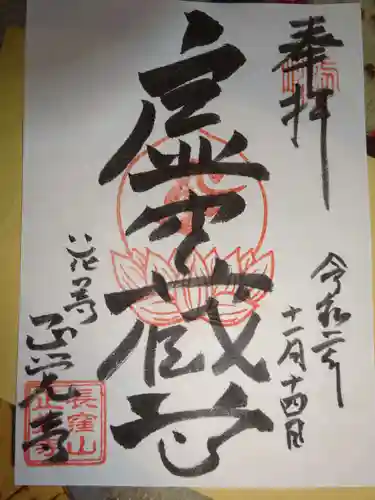 奉拝
令和二年
十一月十四日
虚空蔵尊
花寺
正覚寺
長窪山
正覚寺